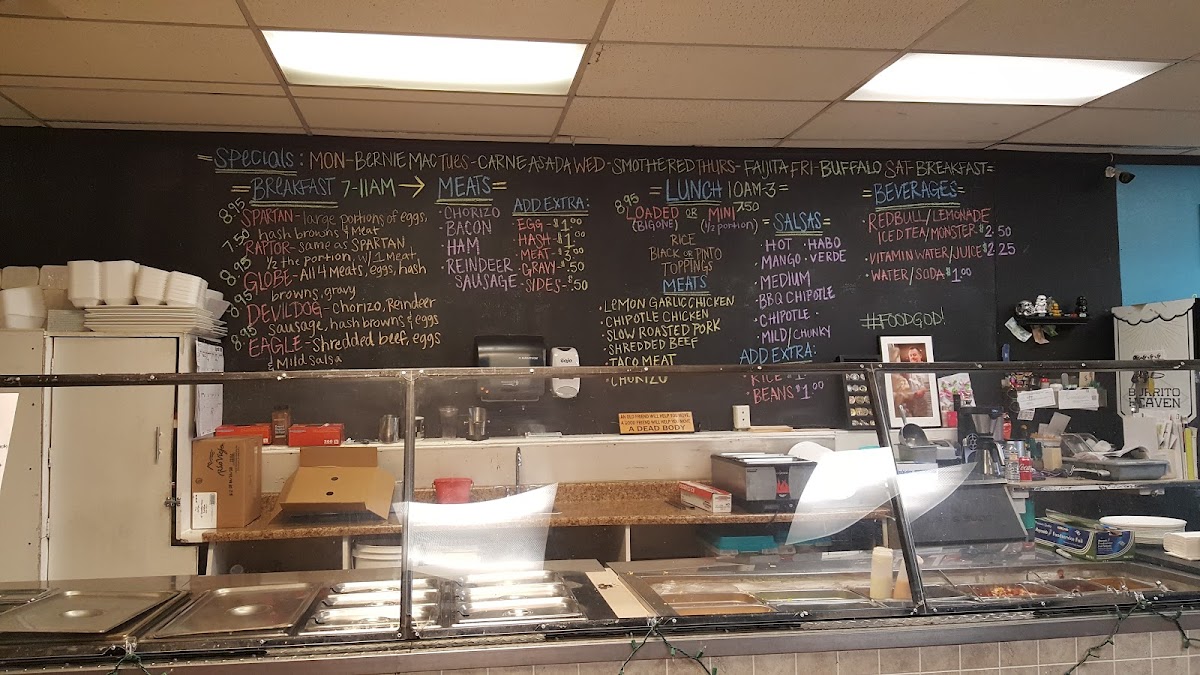 =SPECIALS: MON-BERNIE MAC TUES-CARNE ASADA WED-SMOTHERED THURS-FAIJITA FRI-BUFFALO SAT-BREAKFAST=
=BREAKFAST 7-11AM→
8.95 SPARTAN-large portions of eggs,
hash browns & Meat
7.50 RAPTOR-same as SPARTAN
1/2 the portion, w/ 1 Meat
8.95 GLOBE-All 4 Meats, eggs, hash
browns, gravy
8.95 DEVILDOG-Chorizo, Reindeer
sausage, hash browns & eggs
8.95 EAGLE-Shredded beef, eggs
& Mild Salsa
MEATS=
·CHORIZO
·BACON
·HAM
·REINDEER
SAUSAGE
ADD EXTRA:
·EGG-$1.00
·HASH-$1.00
·MEAT-$3.00
·GRAVY-$.50
·SIDES-$.50
=LUNCH 10AM-3=
8.95 LOADED OR MINI 7.50
(BIG ONE) (1/2 portion)
RICE
BLACK OR PINTO
TOPPINGS
MEATS
·LEMON GARLIC CHICKEN
·CHIPOTLE CHICKEN
·SLOW ROASTED PORK
·SHREDDED BEEF
·TACO MEAT
·CHORIZO
=SALSAS=
·HOT ·HABO
·MANGO ·VERDE
·MEDIUM
·BBQ CHIPOTLE
·CHIPOTLE
·MILD/CHUNKY
ADD EXTRA:
·RICE $1.00
·BEANS $1.00
=BEVERAGES=
·REDBULL/LEMONADE
ICED TEA/MONSTER-$2.50
·VITAMIN WATER/JUICE $2.25
·WATER/SODA $1.00
#FOODGOD!
AN OLD FRIEND WILL HELP YOU MOVE
A GOOD FRIEND WILL HELP YOU MOVE
A DEAD BODY
BURRITO
HEAVEN